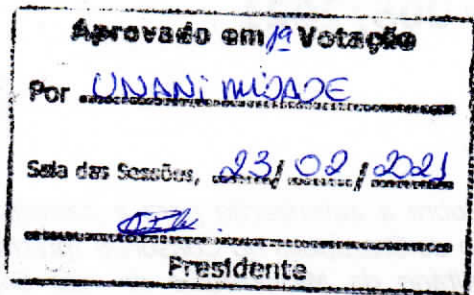 Aprovado em 1ª Votação
Por UNANIMIDADE
Sala das Sessões, 23/02/2021
Presidente